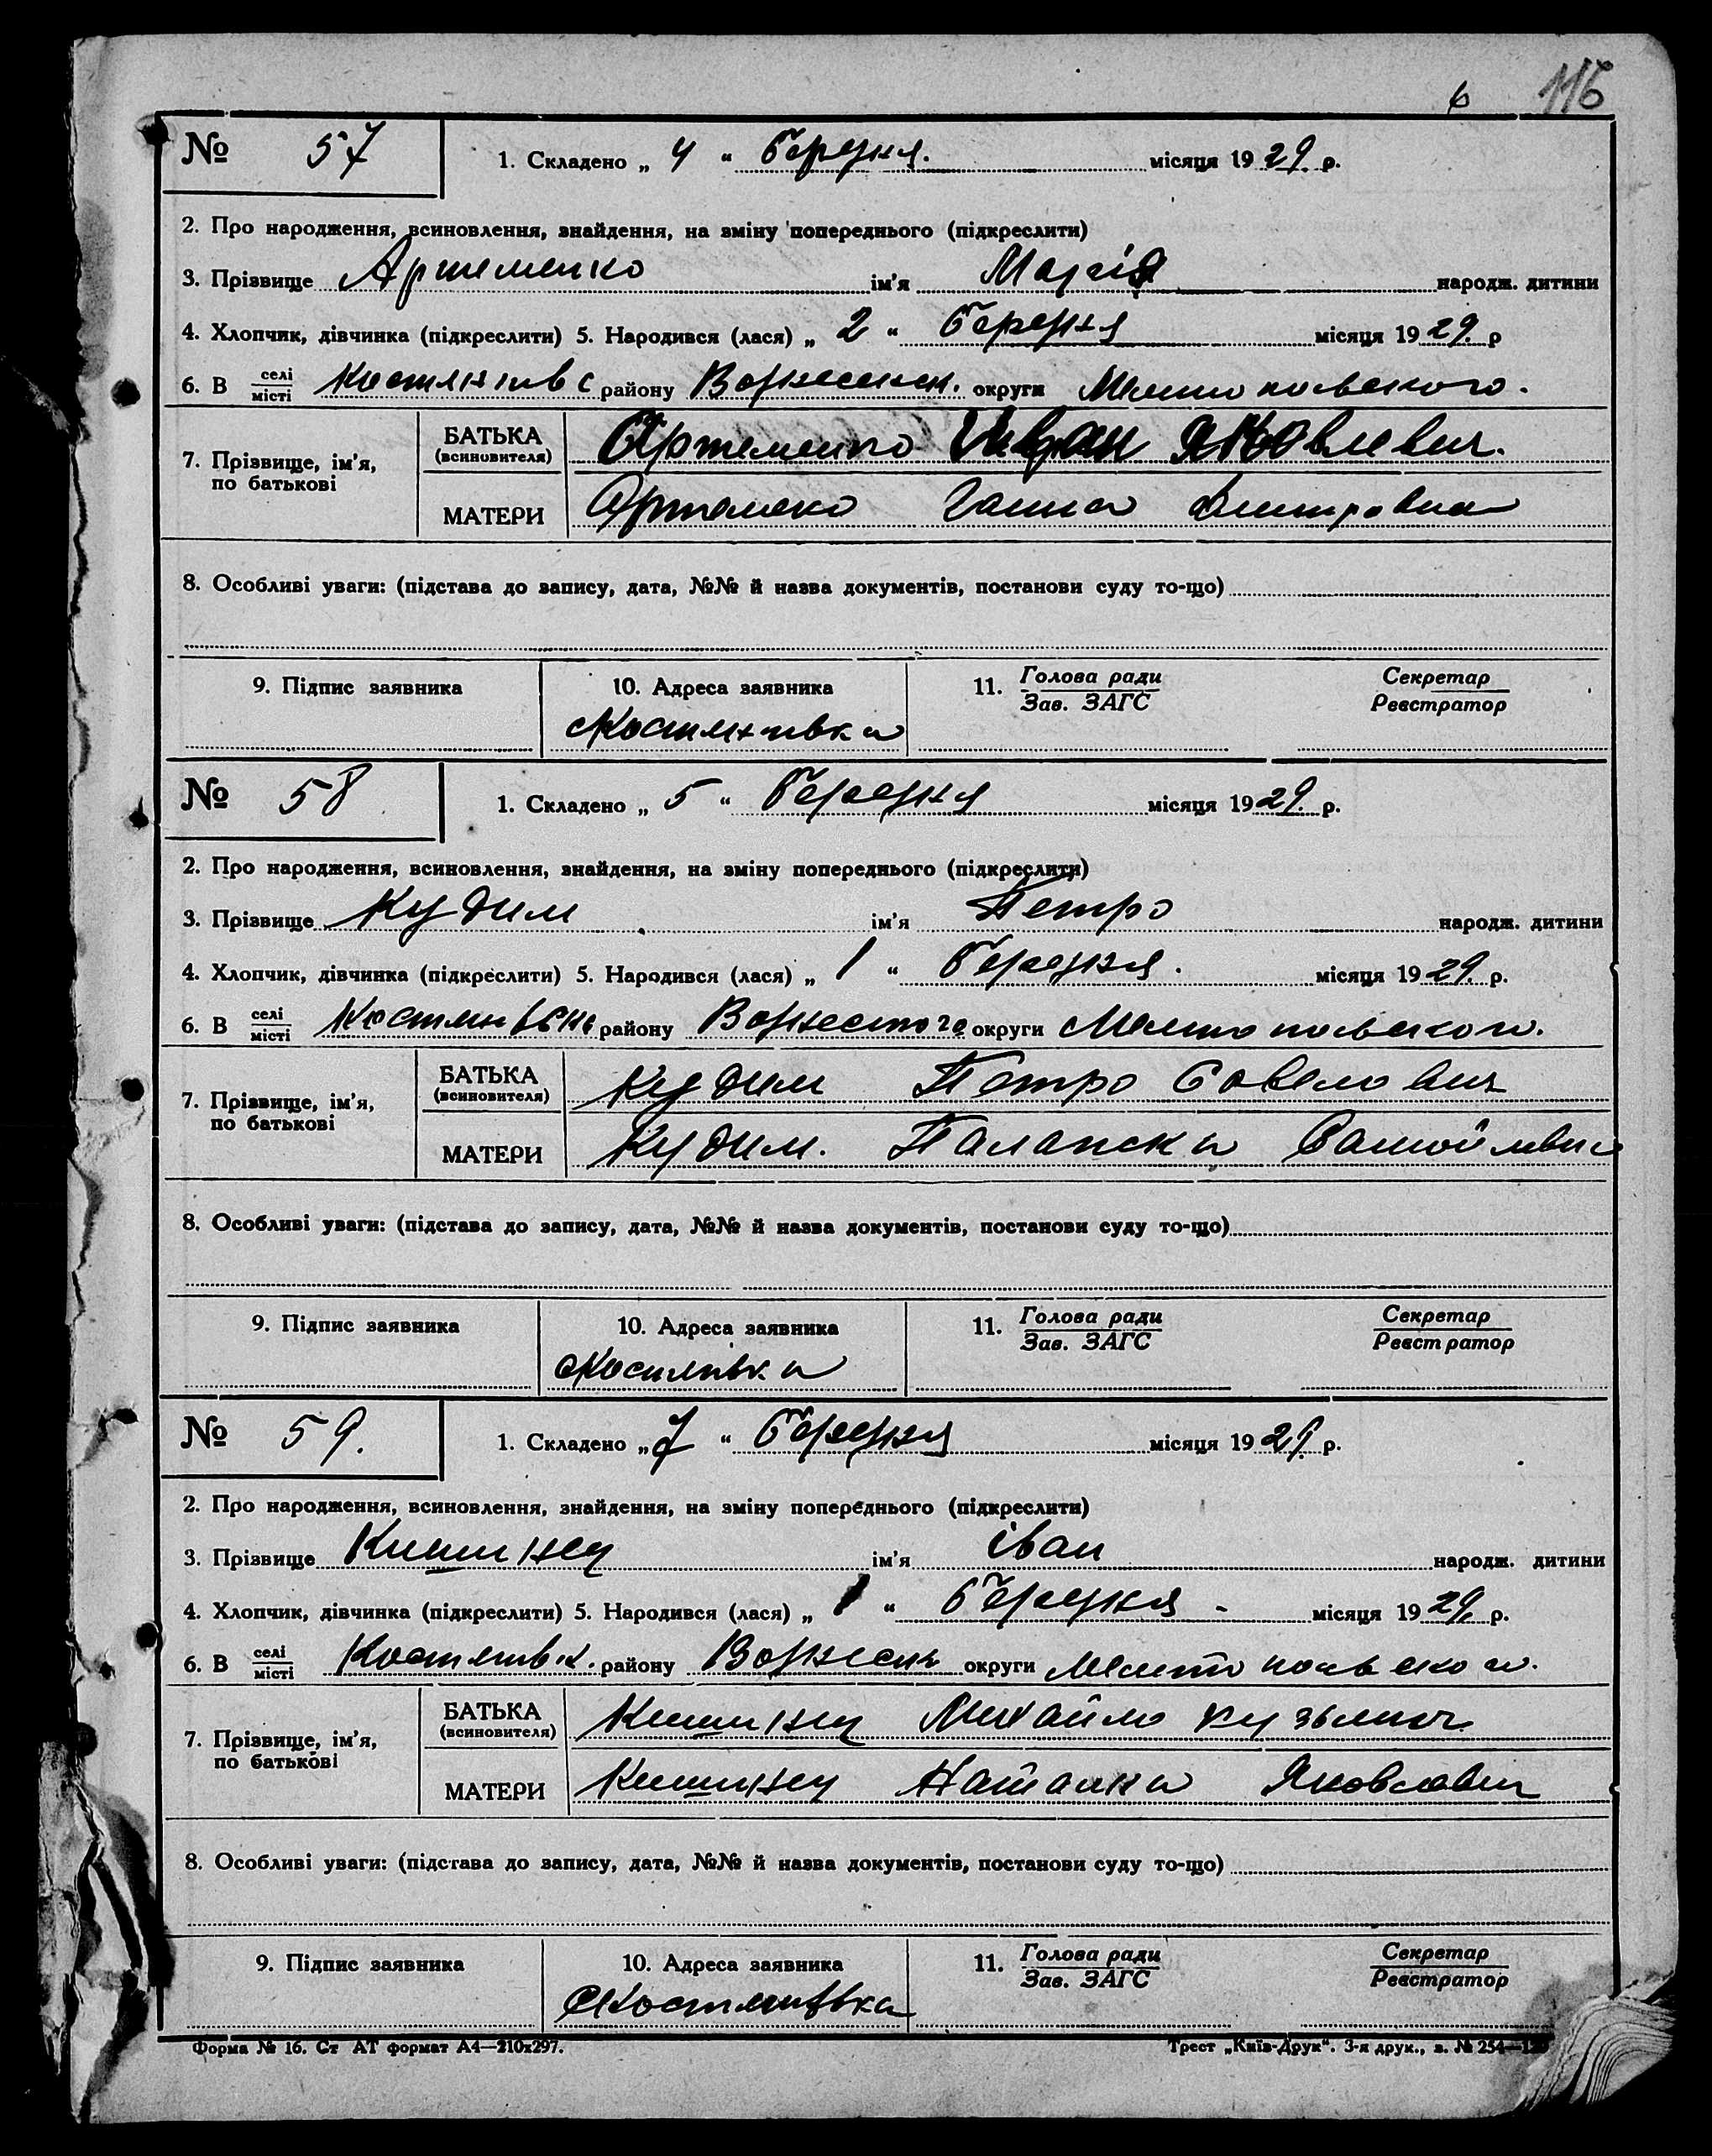 6 116
№ 57 1. Складено „ 4 “ березня. місяця 1929. р.
2. Про народження, всиновлення, знайдення, на зміну попереднього (підкреслити)
3. Прізвище Артеменко ім'я Марія народж. дитини
4. Хлопчик, дівчинка (підкреслити) 5. Народився (лася) „ 2 “ березня місяця 1929. р
6. В селі/місті району округи
7. Прізвище, ім'я, по батькові
БАТЬКА (всиновителя) Артеменко Иван Яковлевич.
МАТЕРИ Ганна
8. Особливі уваги: (підстава до запису, дата, №№ й назва документів, постанови суду то-що)
9. Підпис заявника 10. Адреса заявника 11. Голова ради/Зав. ЗАГС Секретар/Реєстратор
№ 58 1. Складено „ 5 “ березня місяця 1929. р.
2. Про народження, всиновлення, знайдення, на зміну попереднього (підкреслити)
3. Прізвище Кудим ім'я Петро народж. дитини
4. Хлопчик, дівчинка (підкреслити) 5. Народився (лася) „ 1 “ березня. місяця 1929. р.
6. В селі/місті району округи
7. Прізвище, ім'я, по батькові
БАТЬКА (всиновителя) Кудим Петро Савелович
МАТЕРИ Кудим.
8. Особливі уваги: (підстава до запису, дата, №№ й назва документів, постанови суду то-що)
9. Підпис заявника 10. Адреса заявника 11. Голова ради/Зав. ЗАГС Секретар/Реєстратор
№ 59. 1. Складено „ 7 “ березня місяця 1929. р.
2. Про народження, всиновлення, знайдення, на зміну попереднього (підкреслити)
3. Прізвище ім'я іван народж. дитини
4. Хлопчик, дівчинка (підкреслити) 5. Народився (лася) „ 1 “ березня - місяця 1929. р.
6. В селі/місті району округи
7. Прізвище, ім'я, по батькові
БАТЬКА (всиновителя) Михайло Кузьмич
МАТЕРИ Наталка
8. Особливі уваги: (підстава до запису, дата, №№ й назва документів, постанови суду то-що)
9. Підпис заявника 10. Адреса заявника 11. Голова ради/Зав. ЗАГС Секретар/Реєстратор
Форма № 16. Ст АТ формат А4—210х297. Трест „Київ-Друк“. 3-я друк., з. № 254—